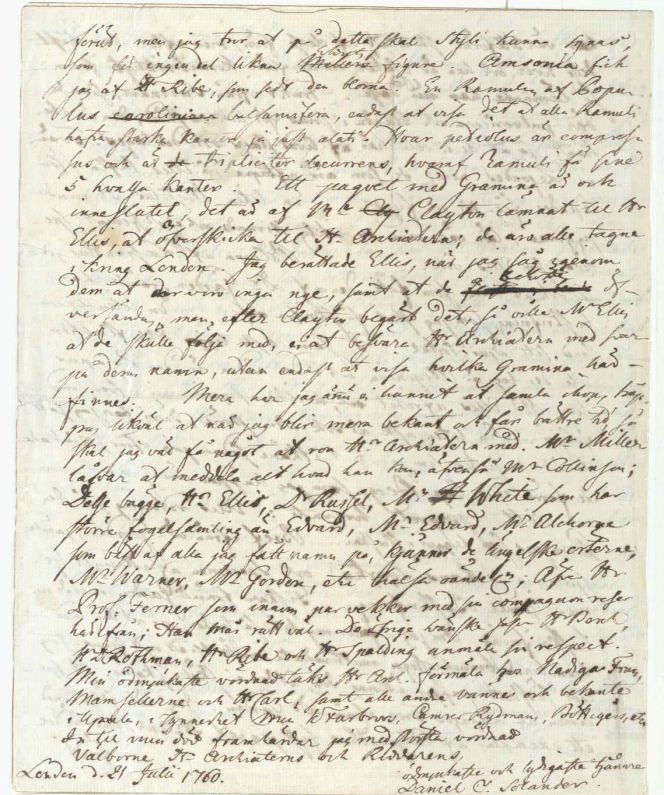 förut, men jag tror at på detta skal Styli kunna synas,
som ej ingendel likna Millers figurer. Amsonia fick
jag af Hr Ribe, som sedt den bloma. En Ramulus af Popu-
lus caroliniana balsamifera, endast at visa det at alla Ramuli
hafva starka kanter ja just alati. Hvar petiolus är compres-
sus och är de tripliciter decurrens, hvaraf Ramuli få sine
5 hvassa kanter. Ett paquet med Gramina är och
inneslutet, det är af Mr Cly Clayton lämnat til Hr
Ellis, at öfverskicka til Hr Archiatern; de äro alle tagne
i kring London. Jag berättade Ellis, när jag såg igenom
dem at der voro inga nye, samt at de
versändas, men efter Clayton begärt det, så ville Mr Ellis
at de skulle följa med, ej at besvära Hr Archiatern med svar
på deras namn, utan endast at visa hvilka Gramina här
finnes. Mera har jag ännu ej hunnit at samla ihop, hop-
pas likväl at när jag blir mera bekant och får bättre tid så
skal jag väl få något at Hr Archiatern med. Mr Miller
låfvar at meddela alt hvad han kan, äfvenså Mr Collinson;
Desse bägge, Hr Ellis, Dr Russel, Mr White som har
större fogelsamling än Edvard, Mr Edvard, Mr Alchorne
som bäst af alla jag fått namn på, känner de Engelske örterne,
Mr Warner, Mr Gordon, etc hälsa oändel:; Äfven Hr
Prof. Ferner som innom par veckor med sin compagnon reser
härifrån; Han mår rätt väl. De öfrige Svänske såsom Hr
Hr Dr Rothman, Hr Ribe och Hr Spalding anmäla sin respect.
Min ödmjukaste vördnad täcks Hr Arch. förmäla hos Nådiga Frun,
Mamsellerne och Hr Carl, samt alla andra vänner och bekanta
i Upsala, i synnerhet Hr Farbror, Camrer Rydmans, Böttigers, etc
In til min död framhärdar jag med största vördnad
Välborne Hr Archiaterns och Riddarens,
London d. 21 Julii 1760.
ödmjukaste och lydigaste tjänare
Daniel C. Solander.